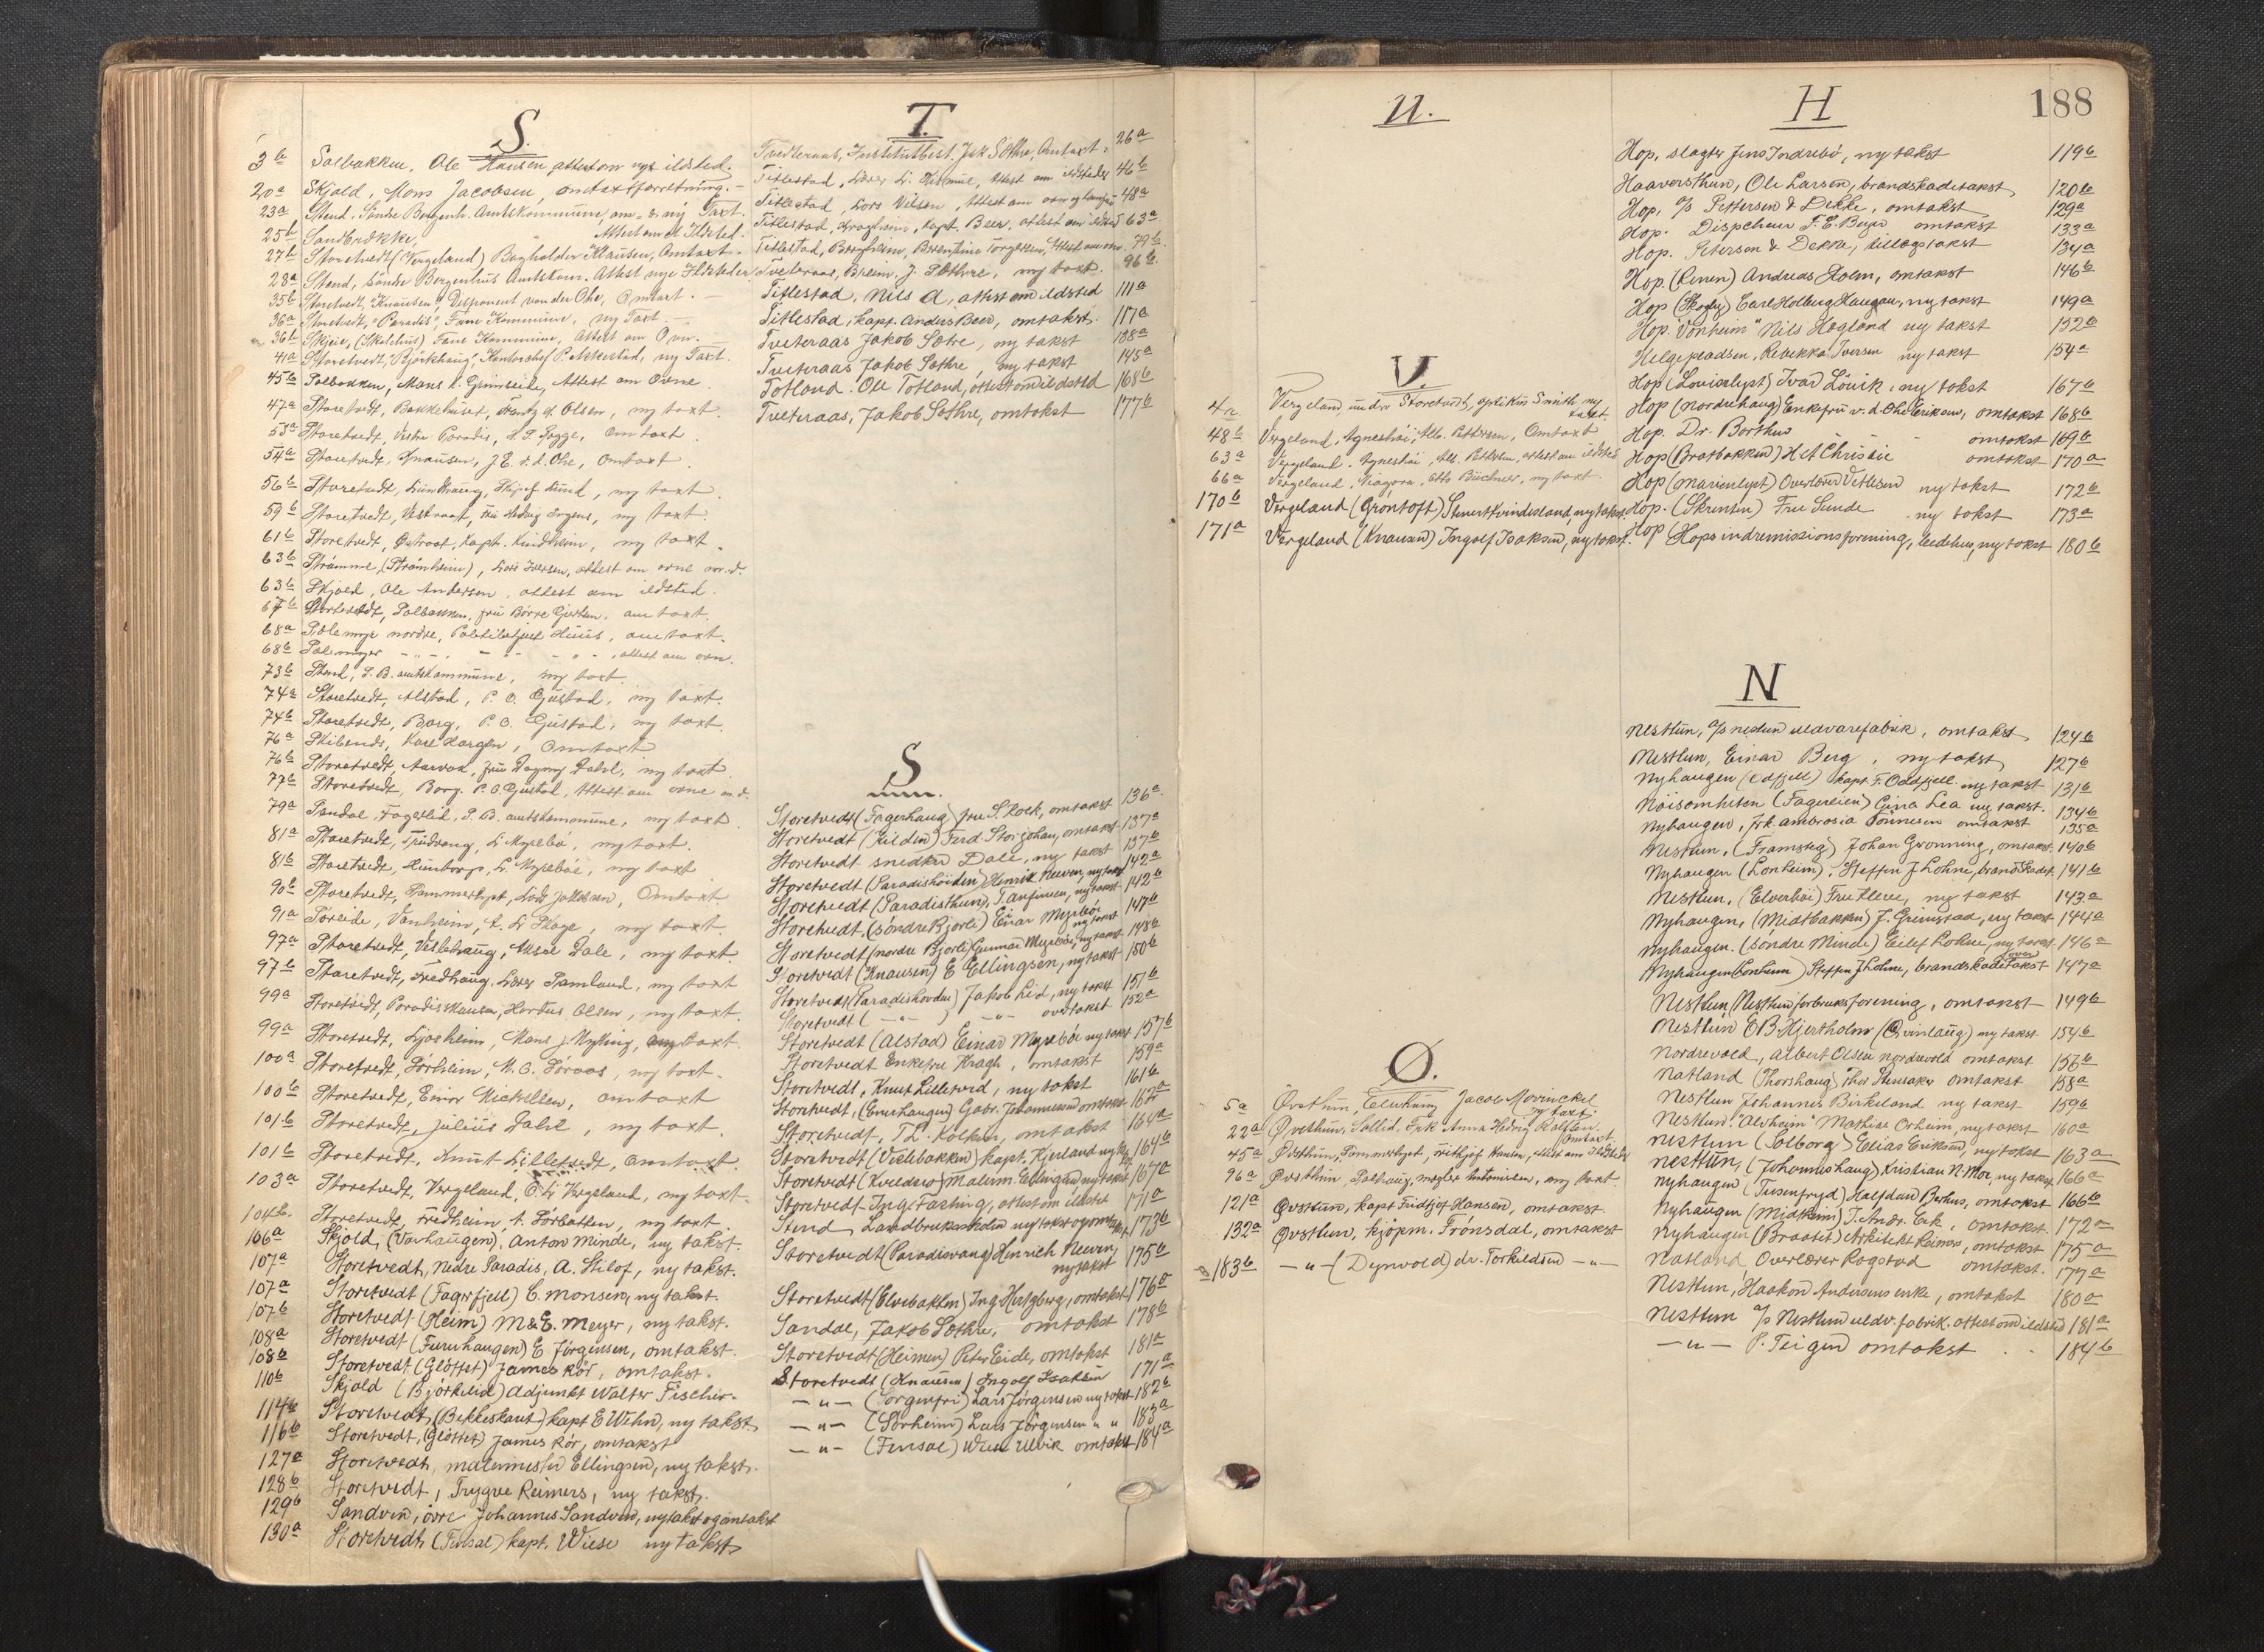 S.
3b Solbakken, Ole Hansen attest om nye ildsted.
20a Skjold, Mons Jacobsen, omtaxtforretning. -
23a Stend, Söndre Bergenh. Amtskommune, om- & ny Taxt.
25b Sandbrekke, Attest om et Ildsted.
27b Storetvedt (Vergeland) Bogholder Klausen, Omtaxt. -
28a Stend, Söndre Bergenhus Amtskom. Attest nye Ildsteder
35b Storetvedt, "Knausen", Disponent von der Ohe, Omtaxt. -
36a Storetvedt, "Paradis", Fane Kommune, ny Taxt. -
36b Skjeie, (Skolehus) Fane Kommune, Attest om Ovn. -
41a Storetvedt, "Björkhaug", Kontorchef P. Askestad, ny Taxt.
45b Solbakken, Mons K. Grimseid, Attest om Ovne.
47a Storetvedt, Bakkehuset, Frantz d. Olsen, ny taxt.
53a Storetvedt, Vestre Paradis, H. P. Fogge, Omtaxt.
54a Storetvedt, Knausen, J. E. v. d. Ohe, Omtaxt.
56b Storetvedt, Lundhaug, Skipsf. Lund, ny taxt.
59b Storetvedt, Vestraat, Fru Hedvig Irgens, ny taxt.
61b Storetvedt, Östraat, Kapt. Lindheim, ny taxt.
63b Strömme (Strömheim), Lars Iversen, attest om ovne m.v.
63b Skjold, Ole Andersen, attest om ildsted.
67b Storetvedt, Solbakken, fru Börre Gjertsen, omtaxt.
68a Sælemyr nordre, Politibetjent Huus, omtaxt.
68b Sælemyr - „ - - „ - - „ -, attest om ovn.
73b Stend, S. B. amtskommune, ny taxt.
74a Storetvedt, Alstad, P. O. Gjustad, ny taxt.
74b Storetvedt, Borg, P. O. Gjustad, ny taxt.
76a Skibenes, Karl Hargen, Omtaxt
76b Storetvedt, Aarvak, fru Dagny Dahl, ny taxt.
77b Storetvedt, Borg. P. O. Gjustad, Attest om ovne m.v.
79a Sandal, Fagerlid, S. B. amtskommune, ny taxt.
81a Storetvedt, Trudvang, L. Myrebö, ny taxt.
81b Storetvedt, Hunborg, L. Myrebö, ny taxt
90b Storetvedt, Sommerlyst, Lars Jakobsen, Omtaxt.
91a Söreide, Vonheim, t. L. Skage, ny taxt.
97a Storetvedt, Veslehaug, Aksel Dale, ny taxt.
97b Storetvedt, Fredhaug, Lærer Samland, ny taxt
99a Storetvedt, Paradisknausen, Hartvig Olsen, ny taxt.
99a Storetvedt, Ljosheim, Mons J. Myking, ny taxt.
100a Storetvedt, Sörheim, M. O. Söraas, ny taxt.
100b Storetvedt, Einar Mickelsen, omtaxt
101b Storetvedt, Julius Dahl, ny taxt.
101b Storetvedt, Knut Lilletvedt, omtaxt.
103a Storetvedt, Vergeland, O. L. Vergeland, ny taxt.
104b. Storetvedt, Fredheim, A. Sörbotten, ny taxt.
106a Skjold, (Varhaugen), Anton Minde, ny takst.
107a Storetvedt, Nedre Paradis, A. Stilof, ny takst.
107a Storetvedt (Fagerfjell) E. Monsen, ny takst.
107b Storetvedt (Heim) M & E. Meyer, ny takst.
108a Storetvedt (Furuhaugen) E Jörgensen, omtakst.
108b Storetvedt (Glöttet) James Rör, omtakst.
110b Skjold (Björkelid) Adjunkt Walter Fischer.
114b Storetvedt, (Bekkeskaut) kapt E Wehn, ny takst
116b Storetvedt, (Glöttet) James Rör, omtakst
127a Storetvedt, malermester Ellingsen, ny takst.
128b Storetvedt, Trygve Reimers, ny takst.
129b Sandven, övre Johannes Sandven, ny takst og omtakst
130a Storetvedt (Finsal) kapt. Wiese ny takst
T.
Tvedteraas, Institutbest. Jak Söthre, Omtaxt. 26a
Titlestad, Lærer L. Titmue, Attest om ildsteder 46b
Titlestad, Lars Nilsen, Attest om ovn og 48a
Titlestad, Kapt. Beer, attest om ildsted 63a
Titlestad, Borgheim, Berentine Torgersen, Attest om ovn. 79b.
Tveteraas, J. Söthre, ny taxt. 96b.
Titlestad, Nils A, attest om ildsted 111a
Titlestad, kapt. Anders Beer, omtakst. 117a
Tveteraas Jakob Sötre, ny takst 138a
Tveteraas Jakob Sothre, ny takst 145a
Totland. Ole Totland, attest om ildsted 168b
Tveteraas, Jakob Sothre, omtakst 177b
S
Storetvedt (Fagerhaug) fru S. Koch, omtakst 136a.
Storetvedt (Kilden) Ferd. Storjohan, omtakst 137a
Storetvedt snedker Dale, ny takst 137b
Storetvedt (Paradishöiden) Henrik Neeven, ny takst 142a
Storetvedt (Paradisthun), T. anfinsen, ny takst 142b
Storetvedt, (söndre Bjorli) Einar Myrebö ny takst 147b
Storetvedt (nordre Bjorli) Gunnar Myrebö, ny takst 148a
Storetvedt (Knausen) E Ellingsen, ny takst 150b
Storetvedt (Paradishovden) Jakob Lid, ny takst 151b
Storetvedt ( -„- ) -„- overtakst 152a
Storetvedt (Alstad) Einar Myrebö ny takst 157b
Storetvedt Enkefru Kragh, omtakst 159a
Storetvedt, Knut Lilletvid, ny takst 161b
Storetvedt, (Einerhaugen) Gabr. Johannessen omtakst
Storetvedt, T L. Kolken, omtakst 164a
Storetvedt (Veslebakken) kapt. Kjerland ny takst 164b
Storetvedt (Kveldsro) Malerm. Ellingsen ny takst 167a
Storetvedt Inge Fasting, attest om ildsted 171a
Stend Landbruksskolen ny takst og omtakst 173b
Storetvedt (Paradisvang) Henrich Neeven, 175a
ny takst
Storetvedt (Elvebakken) Ing Hertzberg, omtakst 176a
Sandal, Jakob Sothre, omtakst 178b
Storetvedt (Heimen) Peter Eide, omtakst 181a
Storetvedt (Knausen) Ingolf Isaksen 171a
-„- (Sorgenfri) Lars Jørgensen ny takst 182b
-„- (Sörheim) Lars Jörgensen „ „ 183a
-„- (Finsal) Wiese Ulvik omtakst 184a
U.
V.
4a. Vergeland under Storetvedt, Smith ny
taxt
48b Vergeland, Agneshöi, Alb. Pettersen, Omtaxt
63a Vergeland, Agneshöi, Alb. Pettersen, attest om ildsted
66a Vergeland, Niagora, Otto Büchner, ny taxt.
170b Vergeland (Gröntoft) Stener Kvindesland, ny takst
171a Vergeland (Knausen) Ingolf Isaksen, ny takst.
Ø.
5a Øvsthun, Elvehaug Jacob Mowinckel
ny taxt.
22a Øvsthun, Sollid. Frk Anna Hedvig Rolfsen.
Omtaxt.
45a Östthun, Sommerlyst, Frithjof Hansen, Attest om Ildsted
96a Øvsthun, Solhaug, megler Antonisen, ny taxt.
121a Øvstun, kapt Fridtjof Hansen, omtakst
132a Øvstun, kjöpm. Frönsdal, omtakst
183b -„- (Dynvold) dr. Torkildsen -„-
H
188
Hop, slagter Jens Indrebö, ny takst 119b
Haaversthun, Ole Larsen, brandskadetakst 120b
Hop, a/s Pettersen & Dekke, omtakst 129a
Hop. Dispcheur F. E. Beyer omtakst 133a
Hop. Petersen & Dekke, tillegstakst 134a
Hop. (Renen) Andreas Holm, omtakst 146b
Hop (Skogly) Carl Holberg Haugan, ny takst 149a
Hop. "Vonheim" Nils Hagland ny takst 152a
Helgepladsen, Rebekka Iversen ny takst 154a
Hop (Louiselyst) Ivar Lövik, ny takst 167b
Hop (Nordrehaug) Enkefru v. d. Ohe Eriksen, omtakst 168b
Hop. Dr. Borthen - - omtakst 169b
Hop (Bratbakken) Christie omtakst 170a
Hop (Marienlyst) Overlærer Vetlesen ny takst 172b
Hop. (Skrenten) Fru Sunde ny takst 173a
Hop (Hops indremissionsforening, bedehus, ny takst 180b
N
Nesttun, a/s nestun uldvarefabrik, omtakst 124b
Nesttun, Einar Berg, ny takst 127b
Nyhaugen (Odfjell) kapt. F. Oddfjell ny takst 131b
Nöisomheten (Fagerheien) Gina Lea ny takst. 134b
Nyhaugen, frk. Ambrosia Tönnesen omtakst 135a
Nesttun, (Framsteg) Johan Grønning, omtakst 140b
Nyhaugen (Lonheim), Steffen J Lohne, brandskadet. 141b
Nesttun, (Elverhöi) Fru Kleve, ny takst 143a
Nyhaugen, (Midtbakken) J. Grimstad, ny takst 144a
Nyhaugen. (Söndre Minde) Eilef Lohne, ny takst. 146a
Nyhaugen (Lonheim) Steffen J Lohne, brandskade over takst 147a
Nesttun Nesttun forbruksforening, omtakst 149b
Nesttun E B. Hjertholm (Qvinlaug) ny takst 154b
Nordrevold, Albert Olsen nordrevold omtakst 156b
Natland (Thorshaug) Thor Stensaker omtakst 158a
Nesttun Johannes Birkeland ny takst 159b
Nesttun. "Alvheim" Mathias Orheim, ny takst 160a
Nesttun (Solborg) Elias Eriksen, ny takst 163a
Nesttun, (Johanneshaug) Kristian N. Moe, ny takst 166a
Nyhaugen (Tusenfryd) Halfdan Berhus, omtakst 166b
Nyhaugen (Midtheim) J. Andr. Eik, omtakst. 172a
Nyhaugen (Braatet) Arkitekt Reimers, omtakst 175a
Natland Overlærer Rogstad omtakst. 177a
Nesttun, Haakon Andersens enke, omtakst 180a
Nesttun a/s Nesttun uldv. fabrik. attest om ildsted 181a
-„- P. Teigen omtakst . . 184b